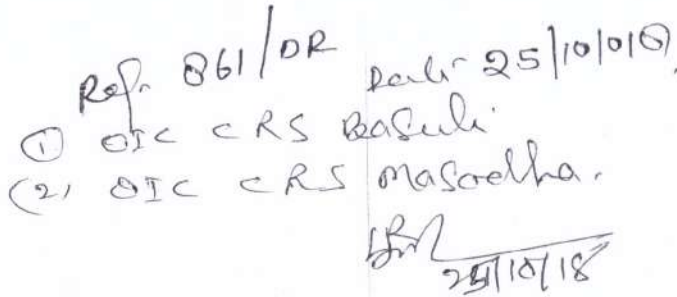 Ref. 861/DR Date 25/10/018
(1) OIC CRS Basuli
(2) OIC CRS Masodha.
25/10/18